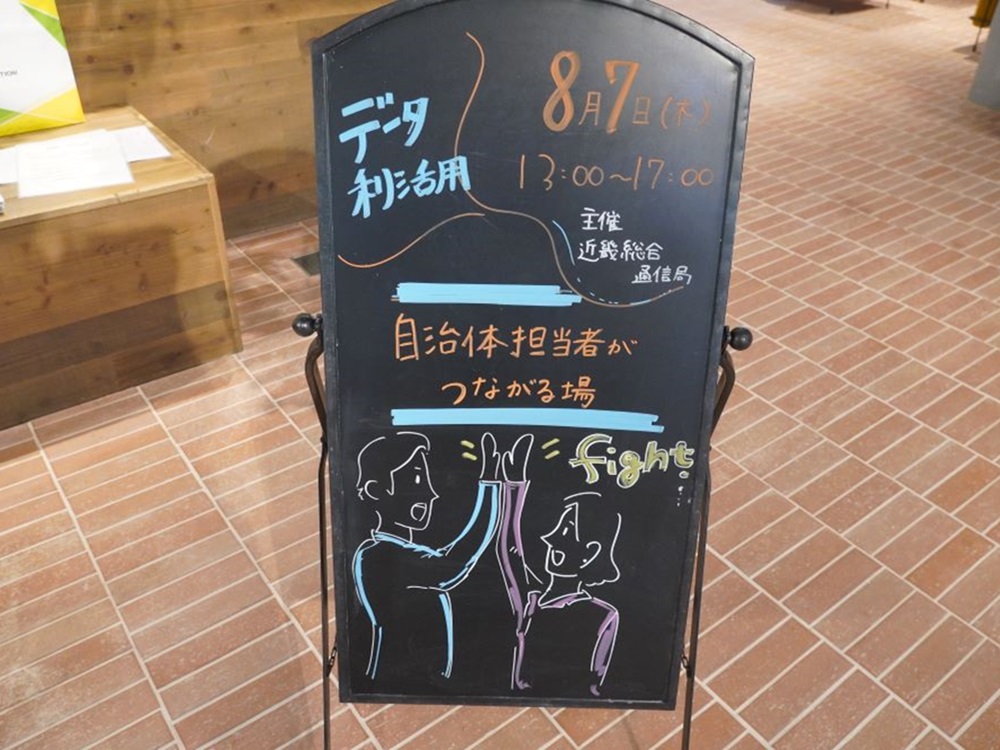 TION
データ
利活用
8月7日(木)
13:00~17:00
主催
近畿総合
通信局
自治体担当者が
つながる場
fight